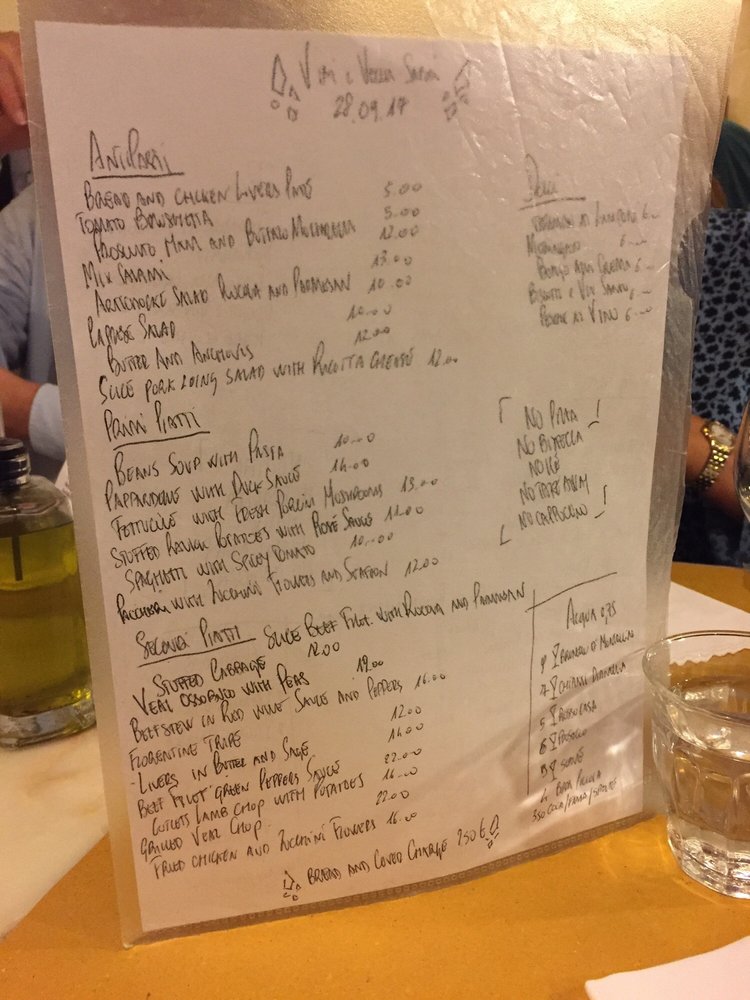 Vini e Vecchi Sapori
28.09.17
ANTIPASTI
BREAD AND CHICKEN LIVERS PATÉ 5.00
TOMATO BRUSCHETTA 5.00
PROSCIUTO HAM AND BUFFALO MOZZARELLA 12.00
MIX SALAMI 13.00
ARTICHOCKE SALAD RUCOLA AND PARMESAN 10.00
CAPRESE SALAD 10.00
BUTTER AND ANCHOVIS 12.00
SLICE PORK LOING SALAD WITH RICOTTA CHEESE 12.00
PRIMI PIATTI
BEANS SOUP WITH PASTA 10.00
PAPPARDELLE WITH DUCK SAUCE 14.00
FETTUCINE WITH FRESH PORCINI MUSHROOMS 13.00
STUFFED RAVIOLI POTATOES WITH ROSÉ SAUCE 11.00
SPAGHETTI WITH SPICY TOMATO 10.00
PACCHERI WITH ZUCCHINI FLOWERS AND SAFRON 12.00
SECONDI PIATTI SLICE BEEF FILET WITH RUCOLA AND PARMESAN
STUFFED CABBAGE 12.00
VEAL OSSOBUCO WITH PEAS 19.00
BEEFSTEW IN RED WINE SAUCE AND PEPPERS 16.00
FLORENTINE TRIPE 12.00
-LIVERS IN BUTTER AND SAGE 14.00
BEEF FILET GREEN PEPPERS SAUCE 22.00
CUTLETS LAMB CHOP WITH POTATOES 16.00
GRILLED VEAL CHOP 22.00
FRIED CHICKEN AND ZUCCHINI FLOWERS 16.00
BREAD AND COVED CHARGE 250€
DOLCI
6
6
6
BISCOTTI E VIN SANTO 6
VINO 6
NO PIZZA
NO BISTECCA
NO ICE
NO TAKE AWAY
NO CAPPUCCINO
ACQUA 0,75
9 BRUNELLO D' MONTALCINO
7 CHIANTI
5 ROSSO CASA
6 PROSECCO
4 BIRRA PICCOLA
350 COCA/FANTA/SPRITE